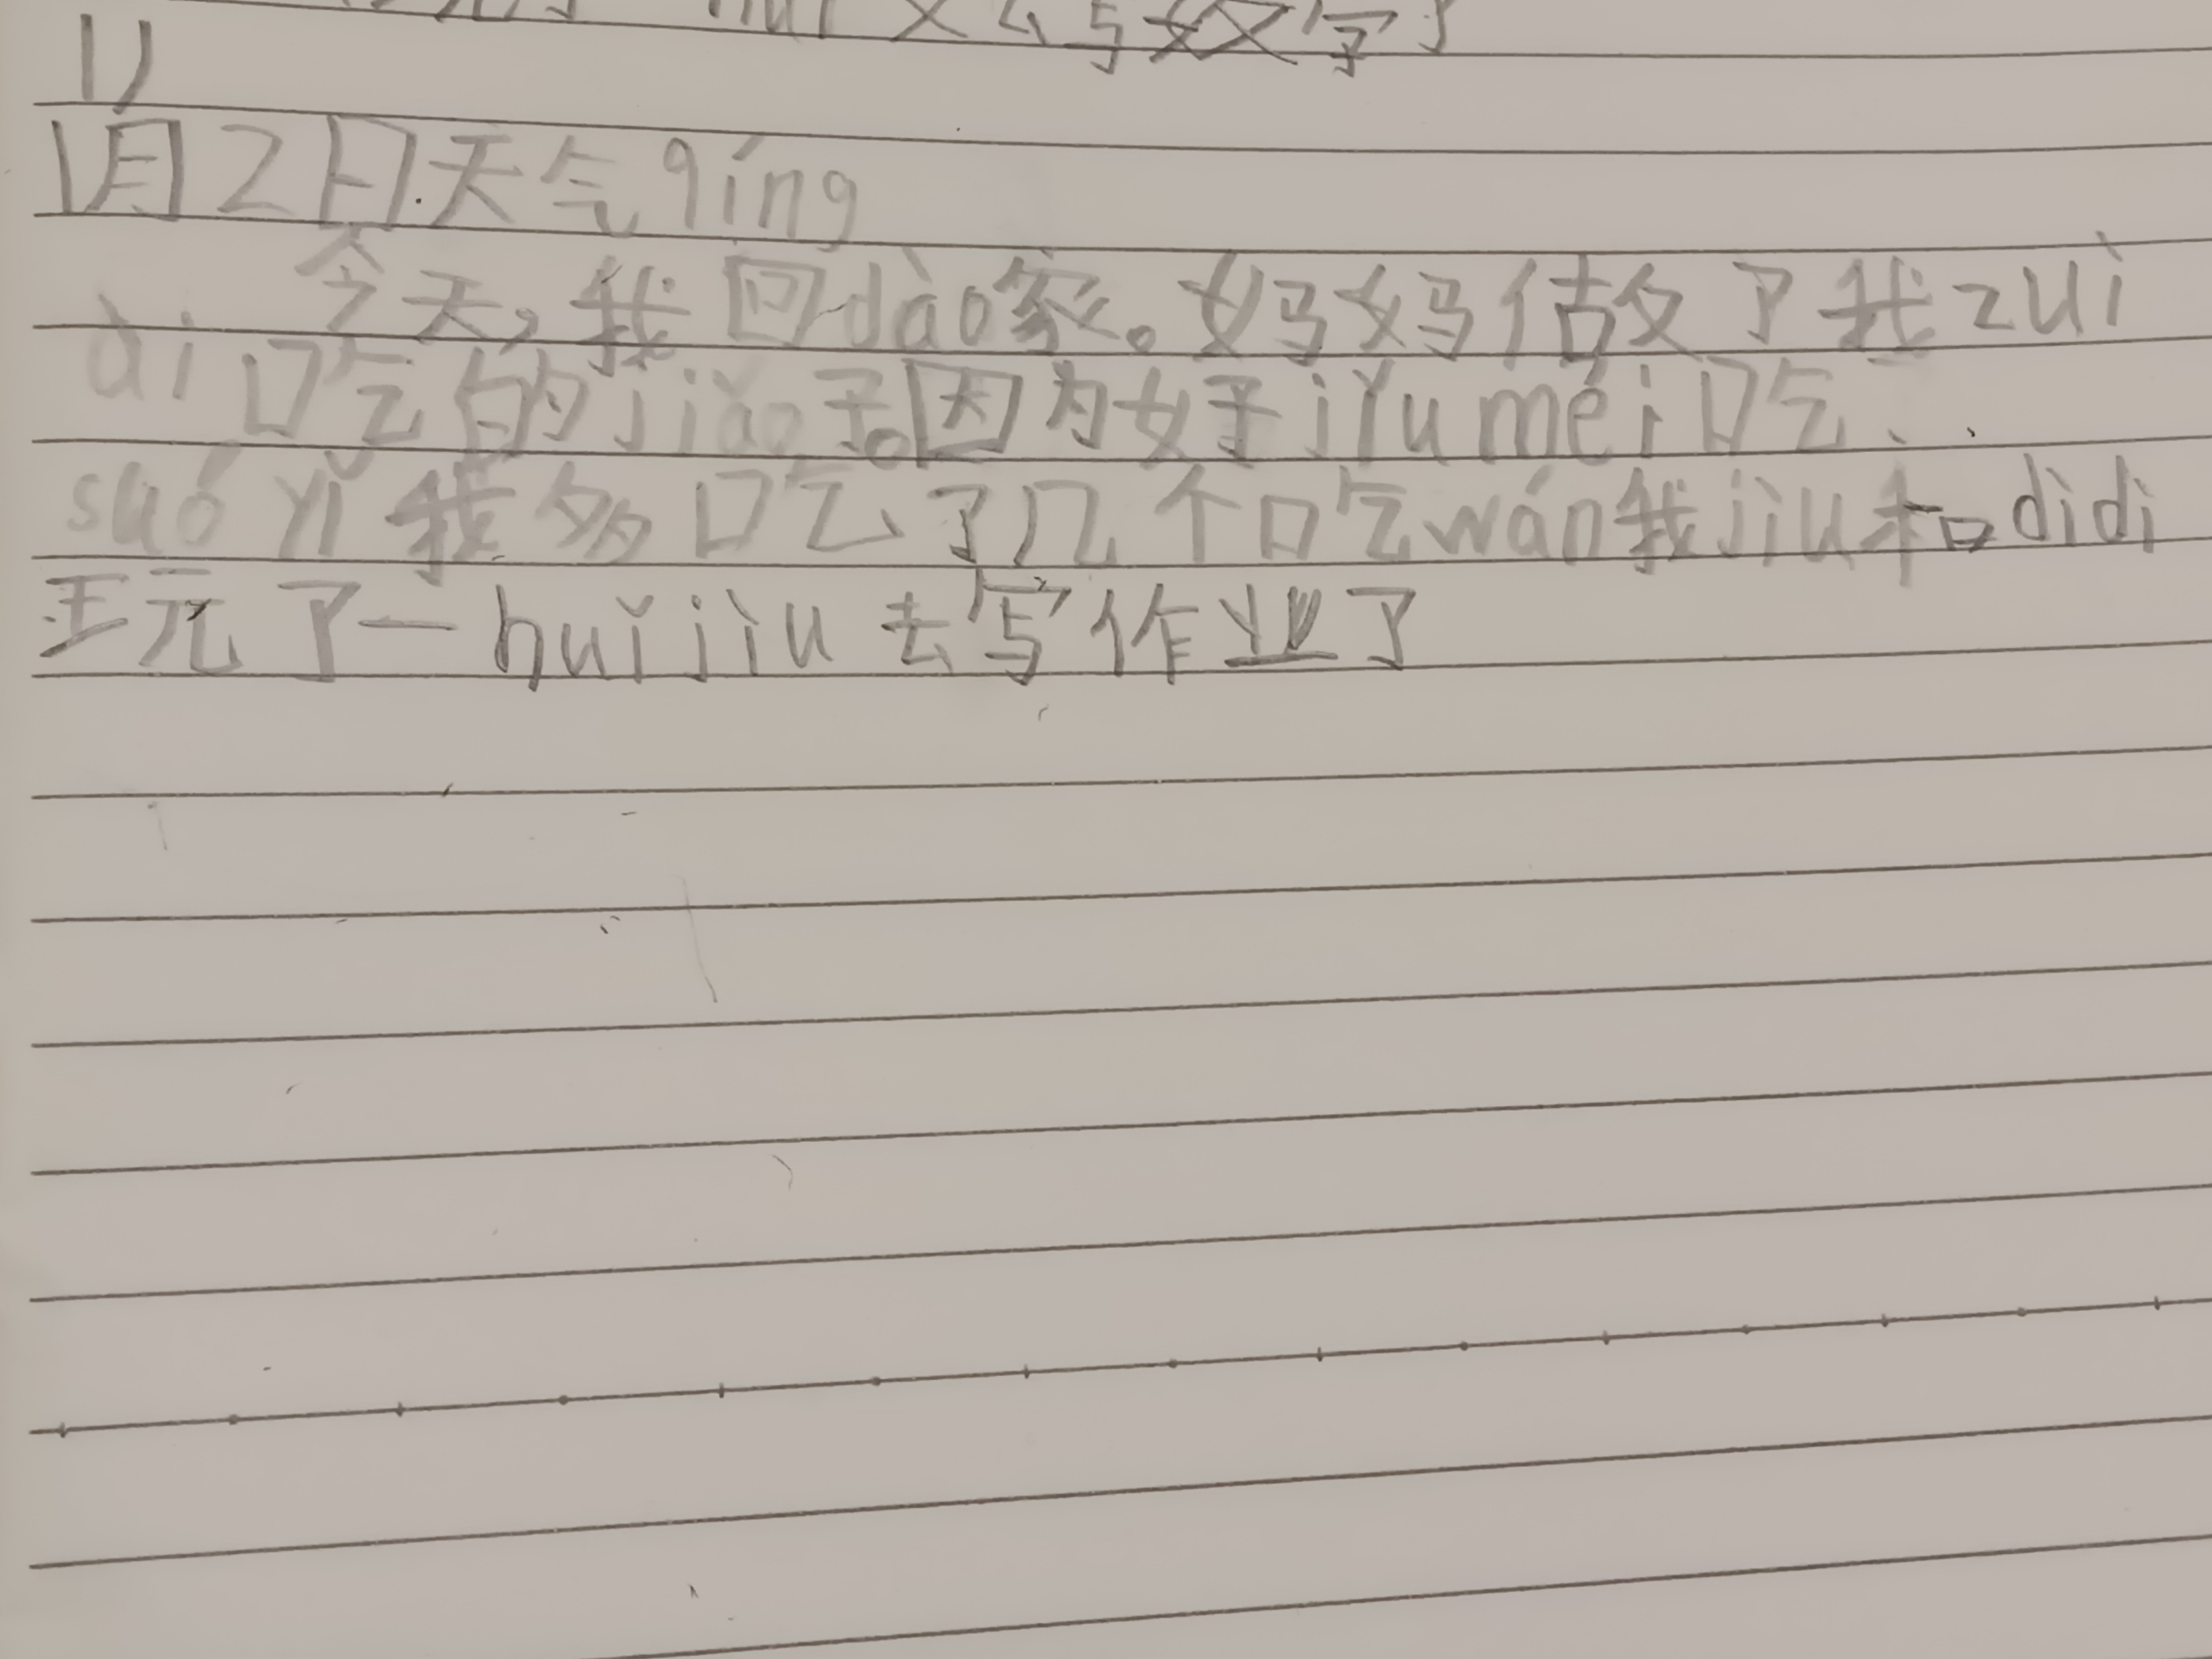 写数字了
1月2日.天气qíng
今天,我回dào家。妈妈做了我zuì
ài吃的jiǎo子。因为好jiǔ méi吃、
suó yǐ我多吃了几个吃wán我jiù和dìdì
玩了一huǐ jiù去写作业了